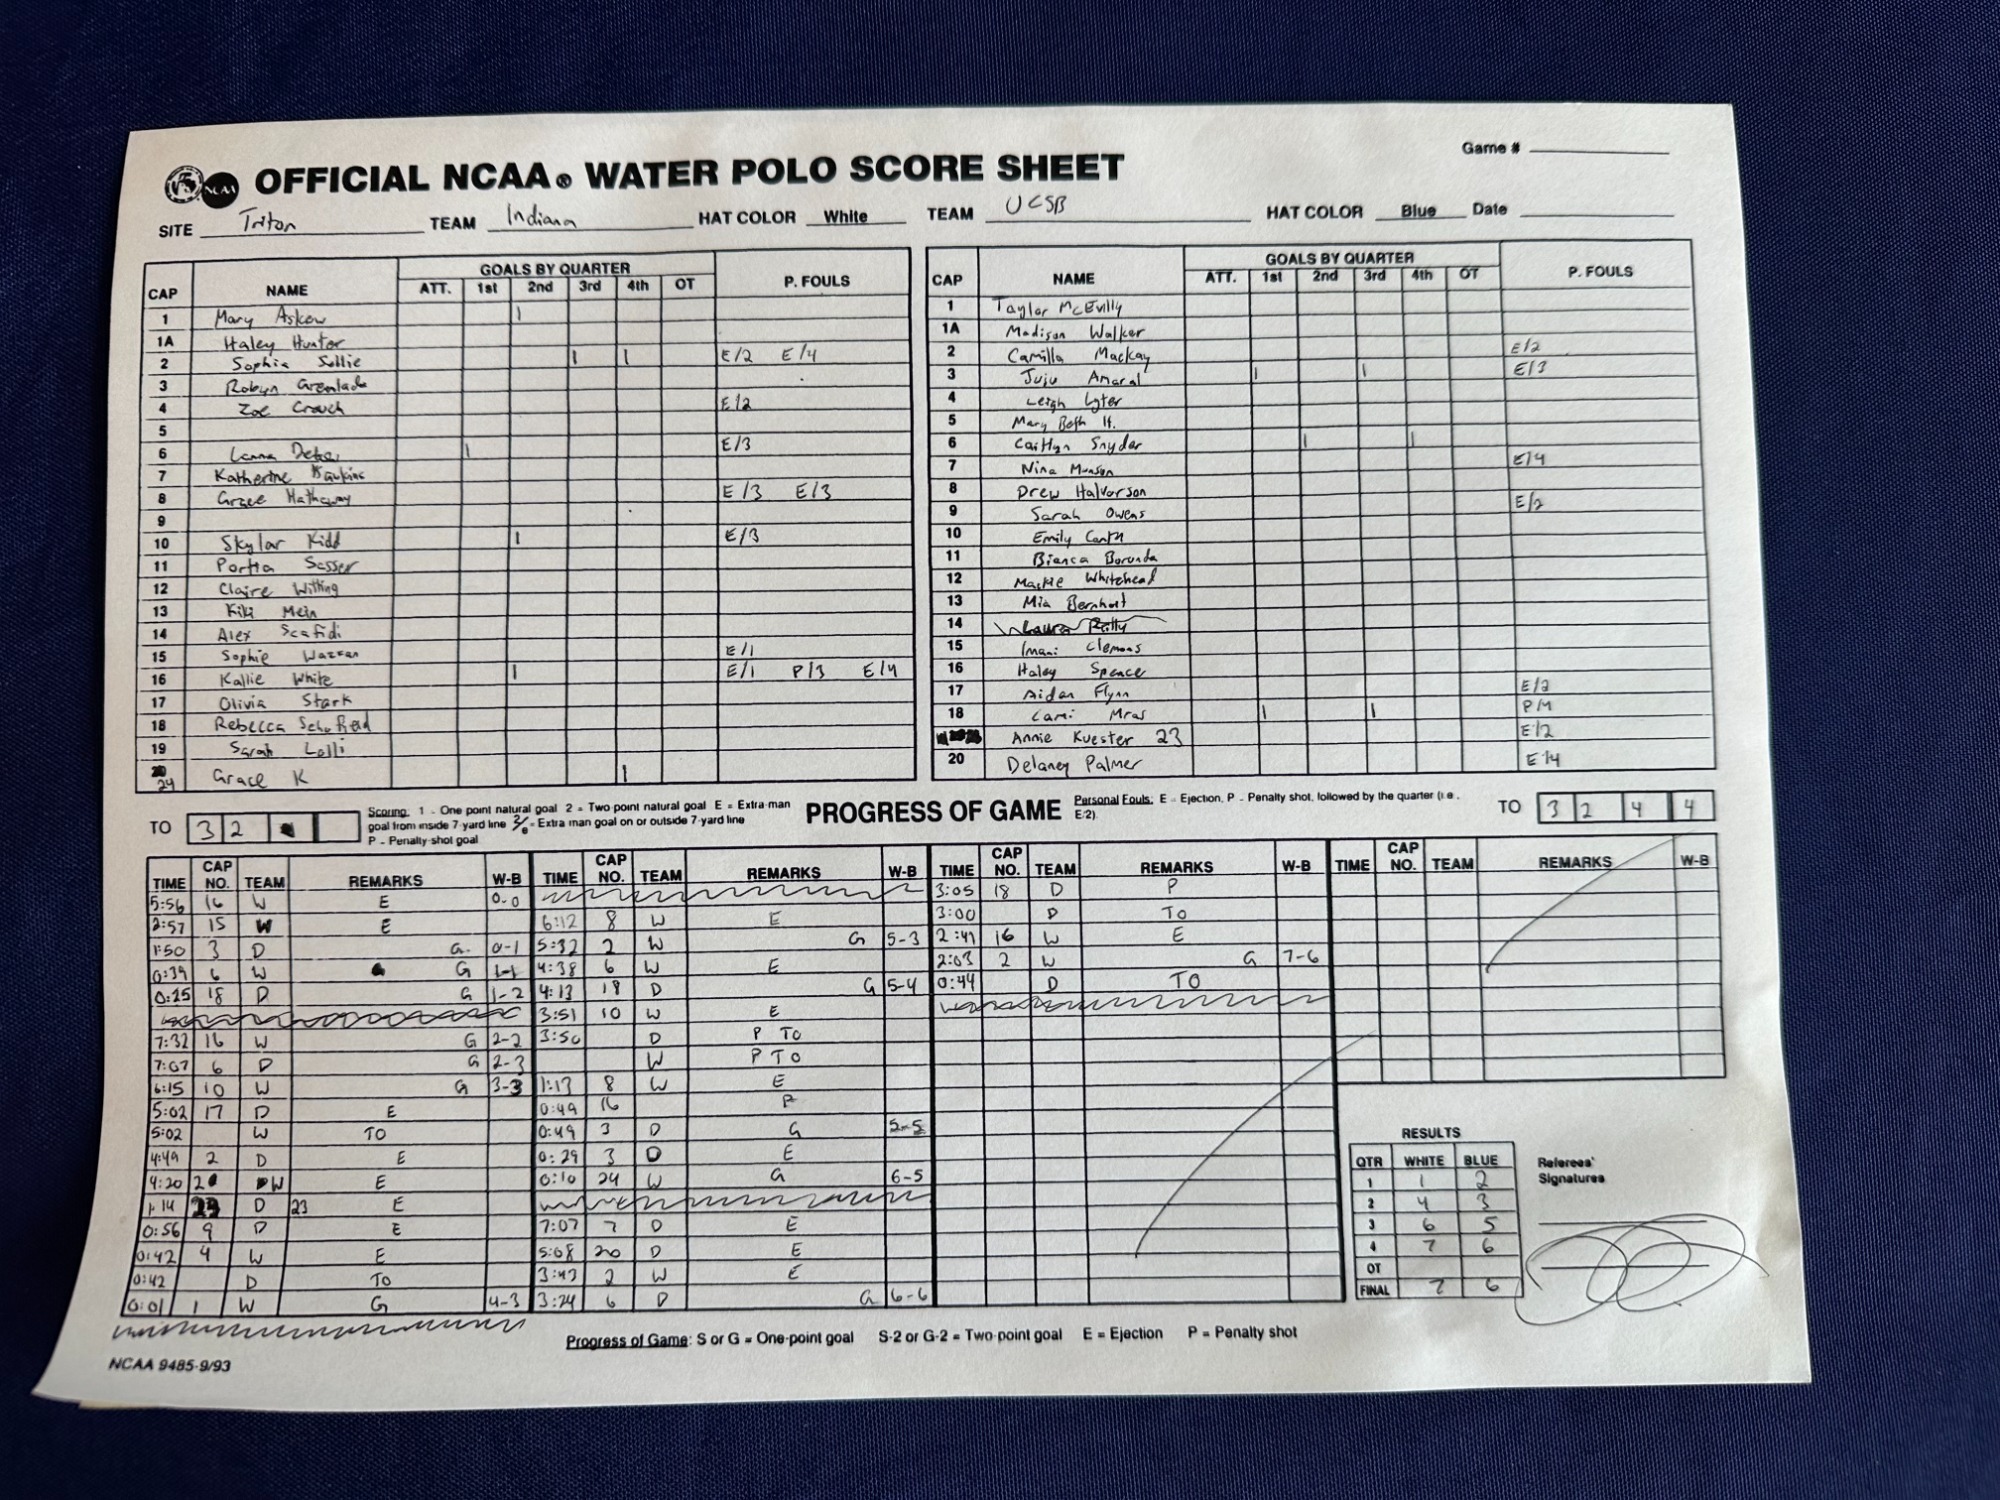 Game #
NCAA OFFICIAL NCAA® WATER POLO SCORE SHEET
SITE Triton TEAM Indiana HAT COLOR White TEAM UCSB HAT COLOR Blue Date
CAP NAME GOALS BY QUARTER P. FOULS
ATT. 1st 2nd 3rd 4th OT
1 Mary Askew |
1A Haley Hunter
2 Sophia Sollie | | E/2 E/4
3 Robyn
4 Zoe Crouch E/2
5
6 Lanna | E/3
7 Katherine
8 Grace Hathaway E/3 E/3
9
10 Skylar Kidd | E/3
11 Portia Sasser
12 Claire Wilting
13 Kiki Mein
14 Alex Scafidi
15 Sophie E/1
16 Kallie White | E/1 P/3 E/4
17 Olivia Stark
18 Rebecca
19 Sarah Lolli
24 Grace K |
CAP NAME GOALS BY QUARTER P. FOULS
ATT. 1st 2nd 3rd 4th OT
1 Taylor McEvilly
1A Madison Walker
2 Camilla Mackay E/2
3 Juju Amaral | | E/3
4 Leigh Lyter
5 Mary Beth H.
6 Caitlyn Snyder | |
7 Nina Munson E/4
8 Drew Halvorson
9 Sarah Owens E/2
10 Emily
11 Bianca Borunda
12 Mackie Whitehead
13 Mia Bernhart
14 Laura Reilly
15 Imani Clemons
16 Haley Spence
17 Aidan Flynn E/2
18 Cami Mras | | P/4
Annie Kuester 23 E/2
20 Delaney Palmer E/4
TO 3 2
Scoring: 1 - One point natural goal 2 = Two-point natural goal E = Extra-man
goal from inside 7-yard line 2/E = Extra man goal on or outside 7-yard line
P - Penalty-shot goal
PROGRESS OF GAME
Personal Fouls: E - Ejection, P - Penalty shot, followed by the quarter (i.e.,
E-2).
TO 3 2 4 4
TIME CAP NO. TEAM REMARKS W-B
5:56 16 W E 0-0
2:57 15 W E
1:50 3 D G 0-1
0:39 6 W G 1-1
0:25 18 D G 1-2
7:32 16 W G 2-2
7:07 6 D G 2-3
6:15 10 W G 3-3
5:02 17 D E
5:02 W TO
4:49 2 D E
4:20 2 W E
1:14 23 D 23 E
0:56 9 D E
0:42 4 W E
0:42 D TO
0:01 1 W G 4-3
TIME CAP NO. TEAM REMARKS W-B
6:12 8 W E
5:32 2 W G 5-3
4:38 6 W E
4:13 18 D G 5-4
3:51 10 W E
3:50 D P TO
W P TO
1:13 8 W E
0:49 16 P
0:49 3 D G 5-5
0:29 3 D E
0:10 24 W G 6-5
7:07 7 D E
5:08 20 D E
3:43 2 W E
3:24 6 D G 6-6
TIME CAP NO. TEAM REMARKS W-B
3:05 18 D P
3:00 D TO
2:41 16 W E
2:03 2 W G 7-6
0:44 D TO
TIME CAP NO. TEAM REMARKS W-B
RESULTS
QTR WHITE BLUE
1 1 2
2 4 3
3 6 5
4 7 6
OT
FINAL 7 6
Referees'
Signatures
Progress of Game: S or G = One-point goal S-2 or G-2 = Two-point goal E = Ejection P = Penalty shot
NCAA 9485-9/93